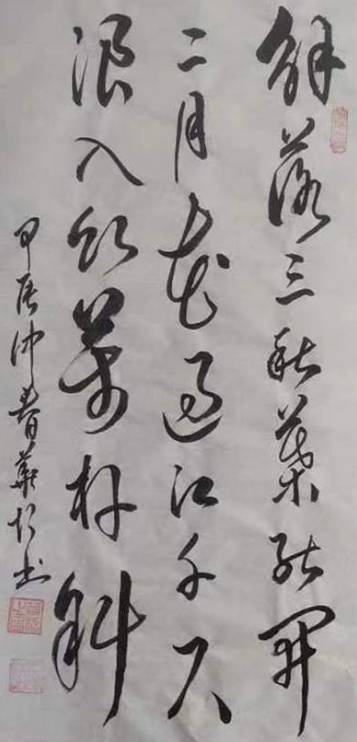 解落三秋葉能開
二月花過江千尺
浪入竹萬竿斜
甲辰仲春書